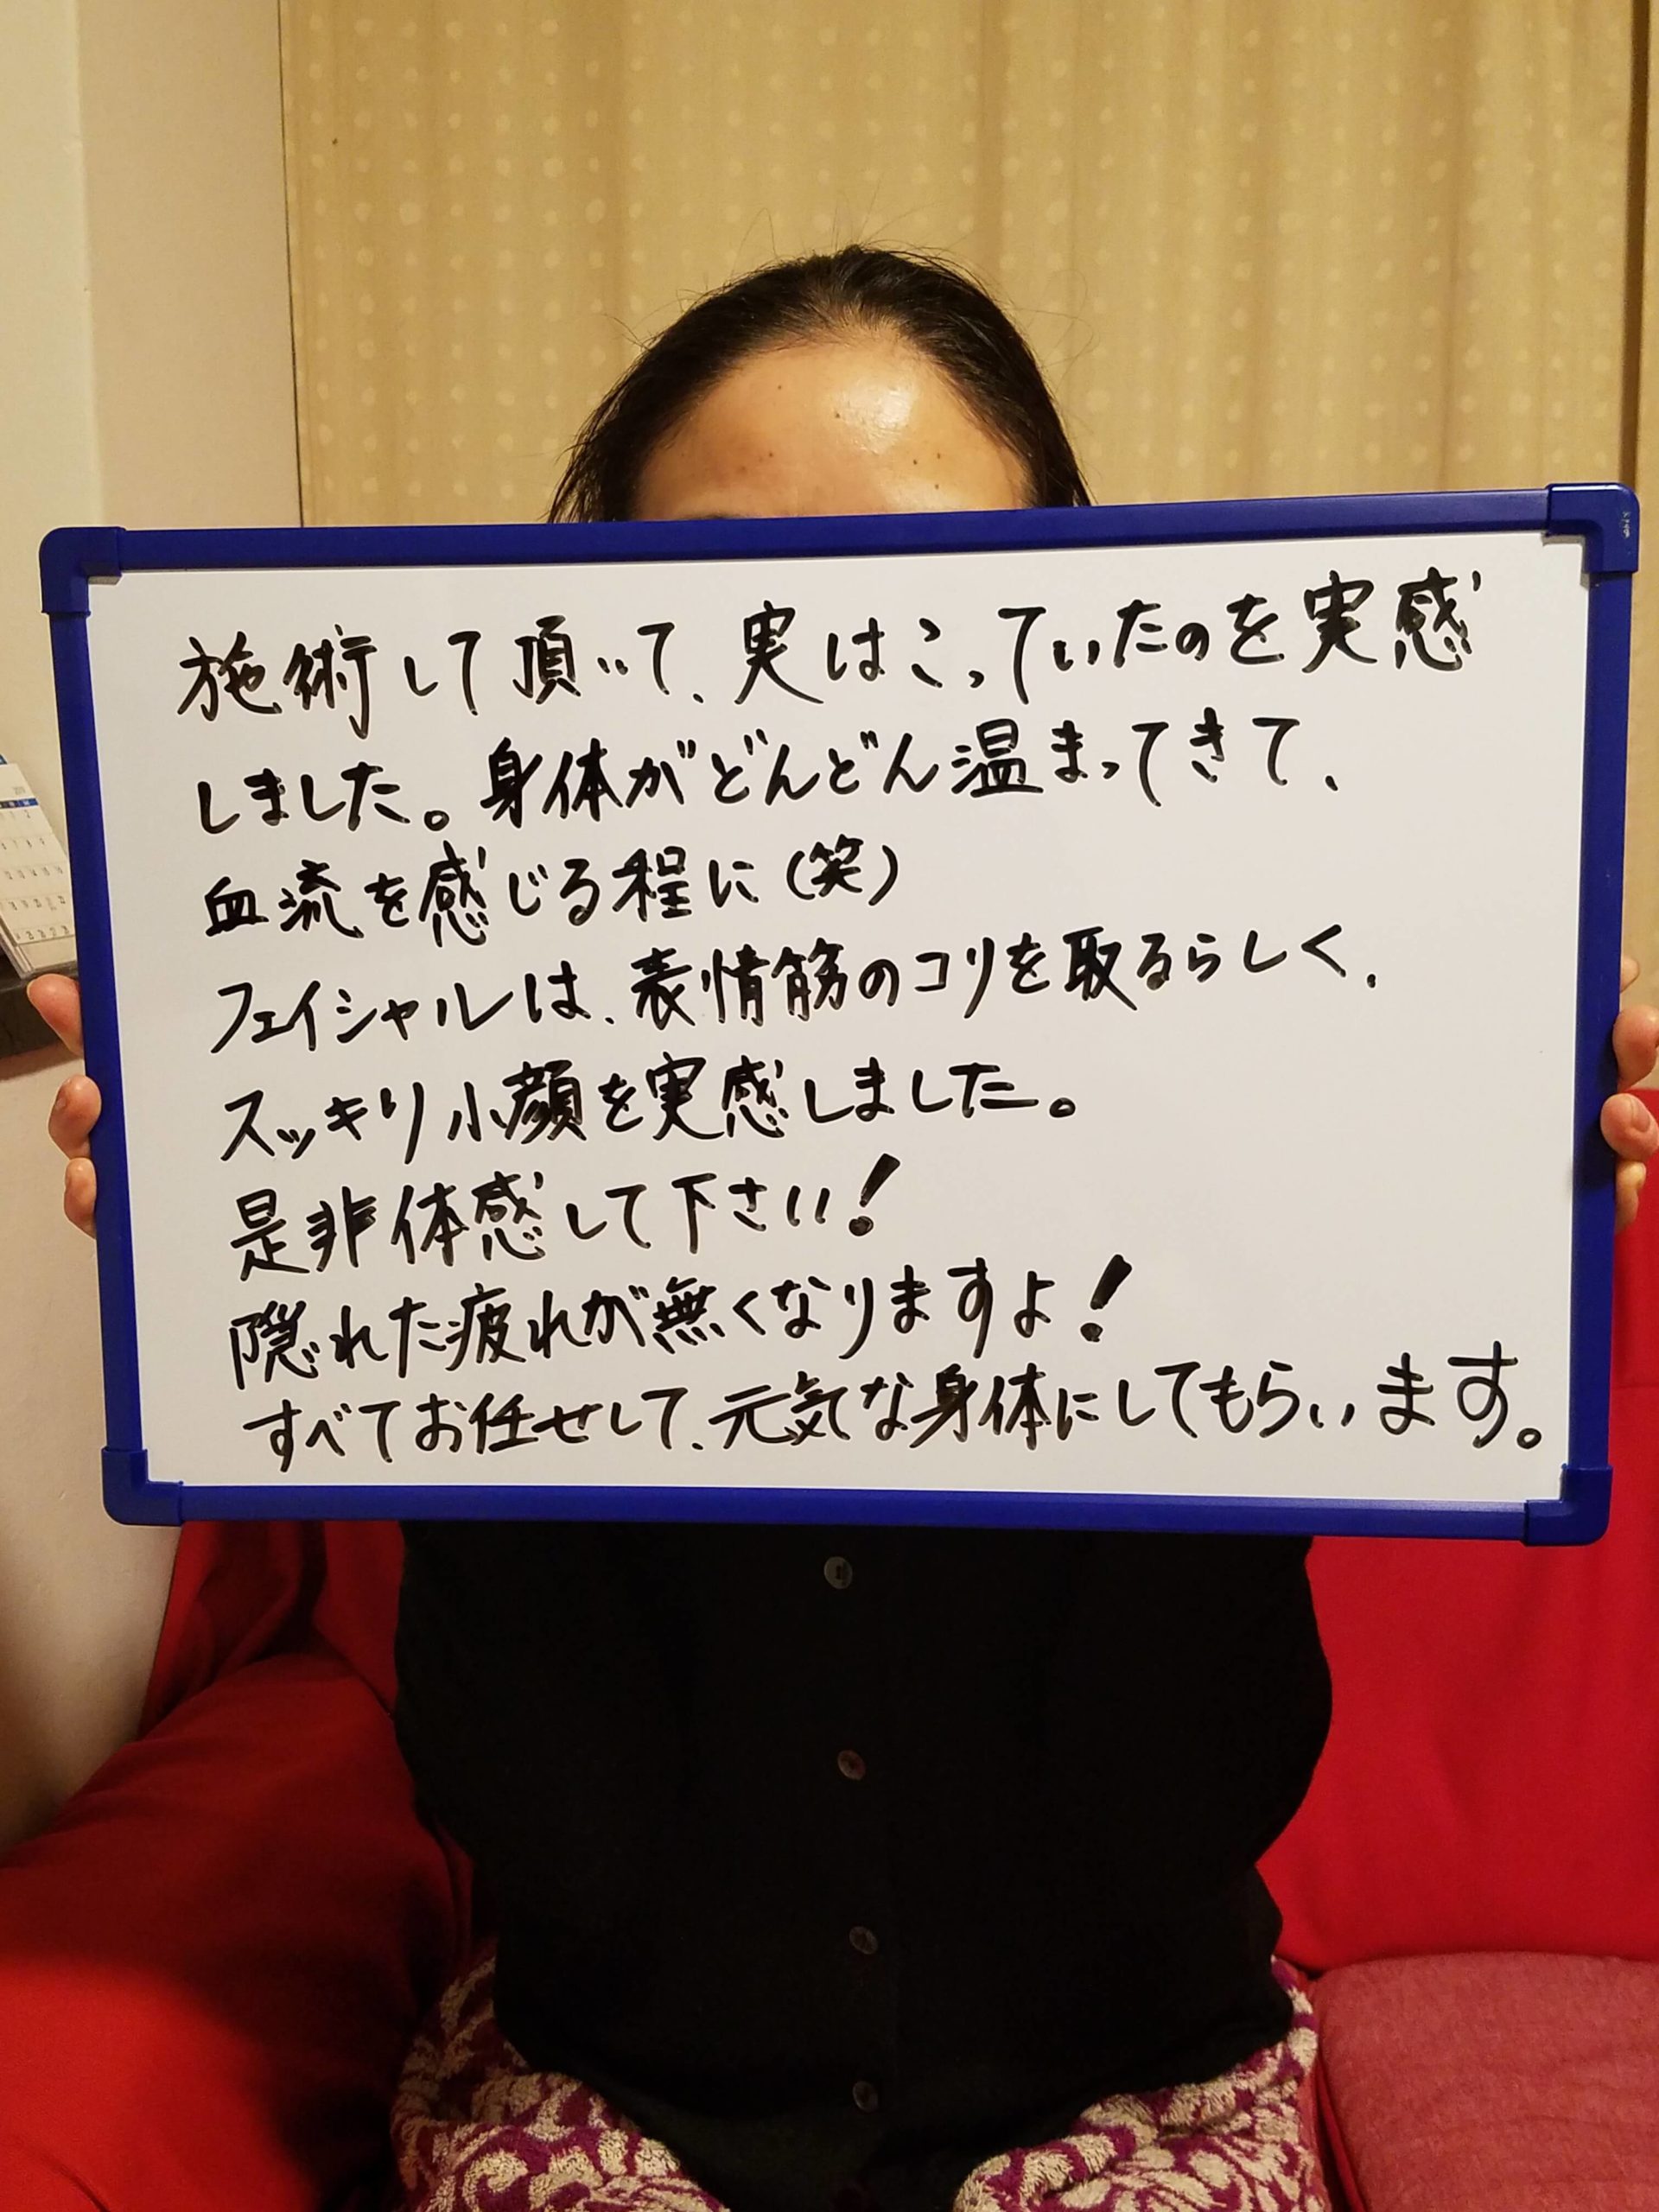 施術して頂いて、実はこっていたのを実感
しました。身体がどんどん温まってきて、
血流を感じる程に(笑)
フェイシャルは、表情筋のコリを取るらしく、
スッキリ小顔を実感しました。
是非体感して下さい!
隠れた疲れが無くなりますよ!
すべてお任せして、元気な身体にしてもらいます。